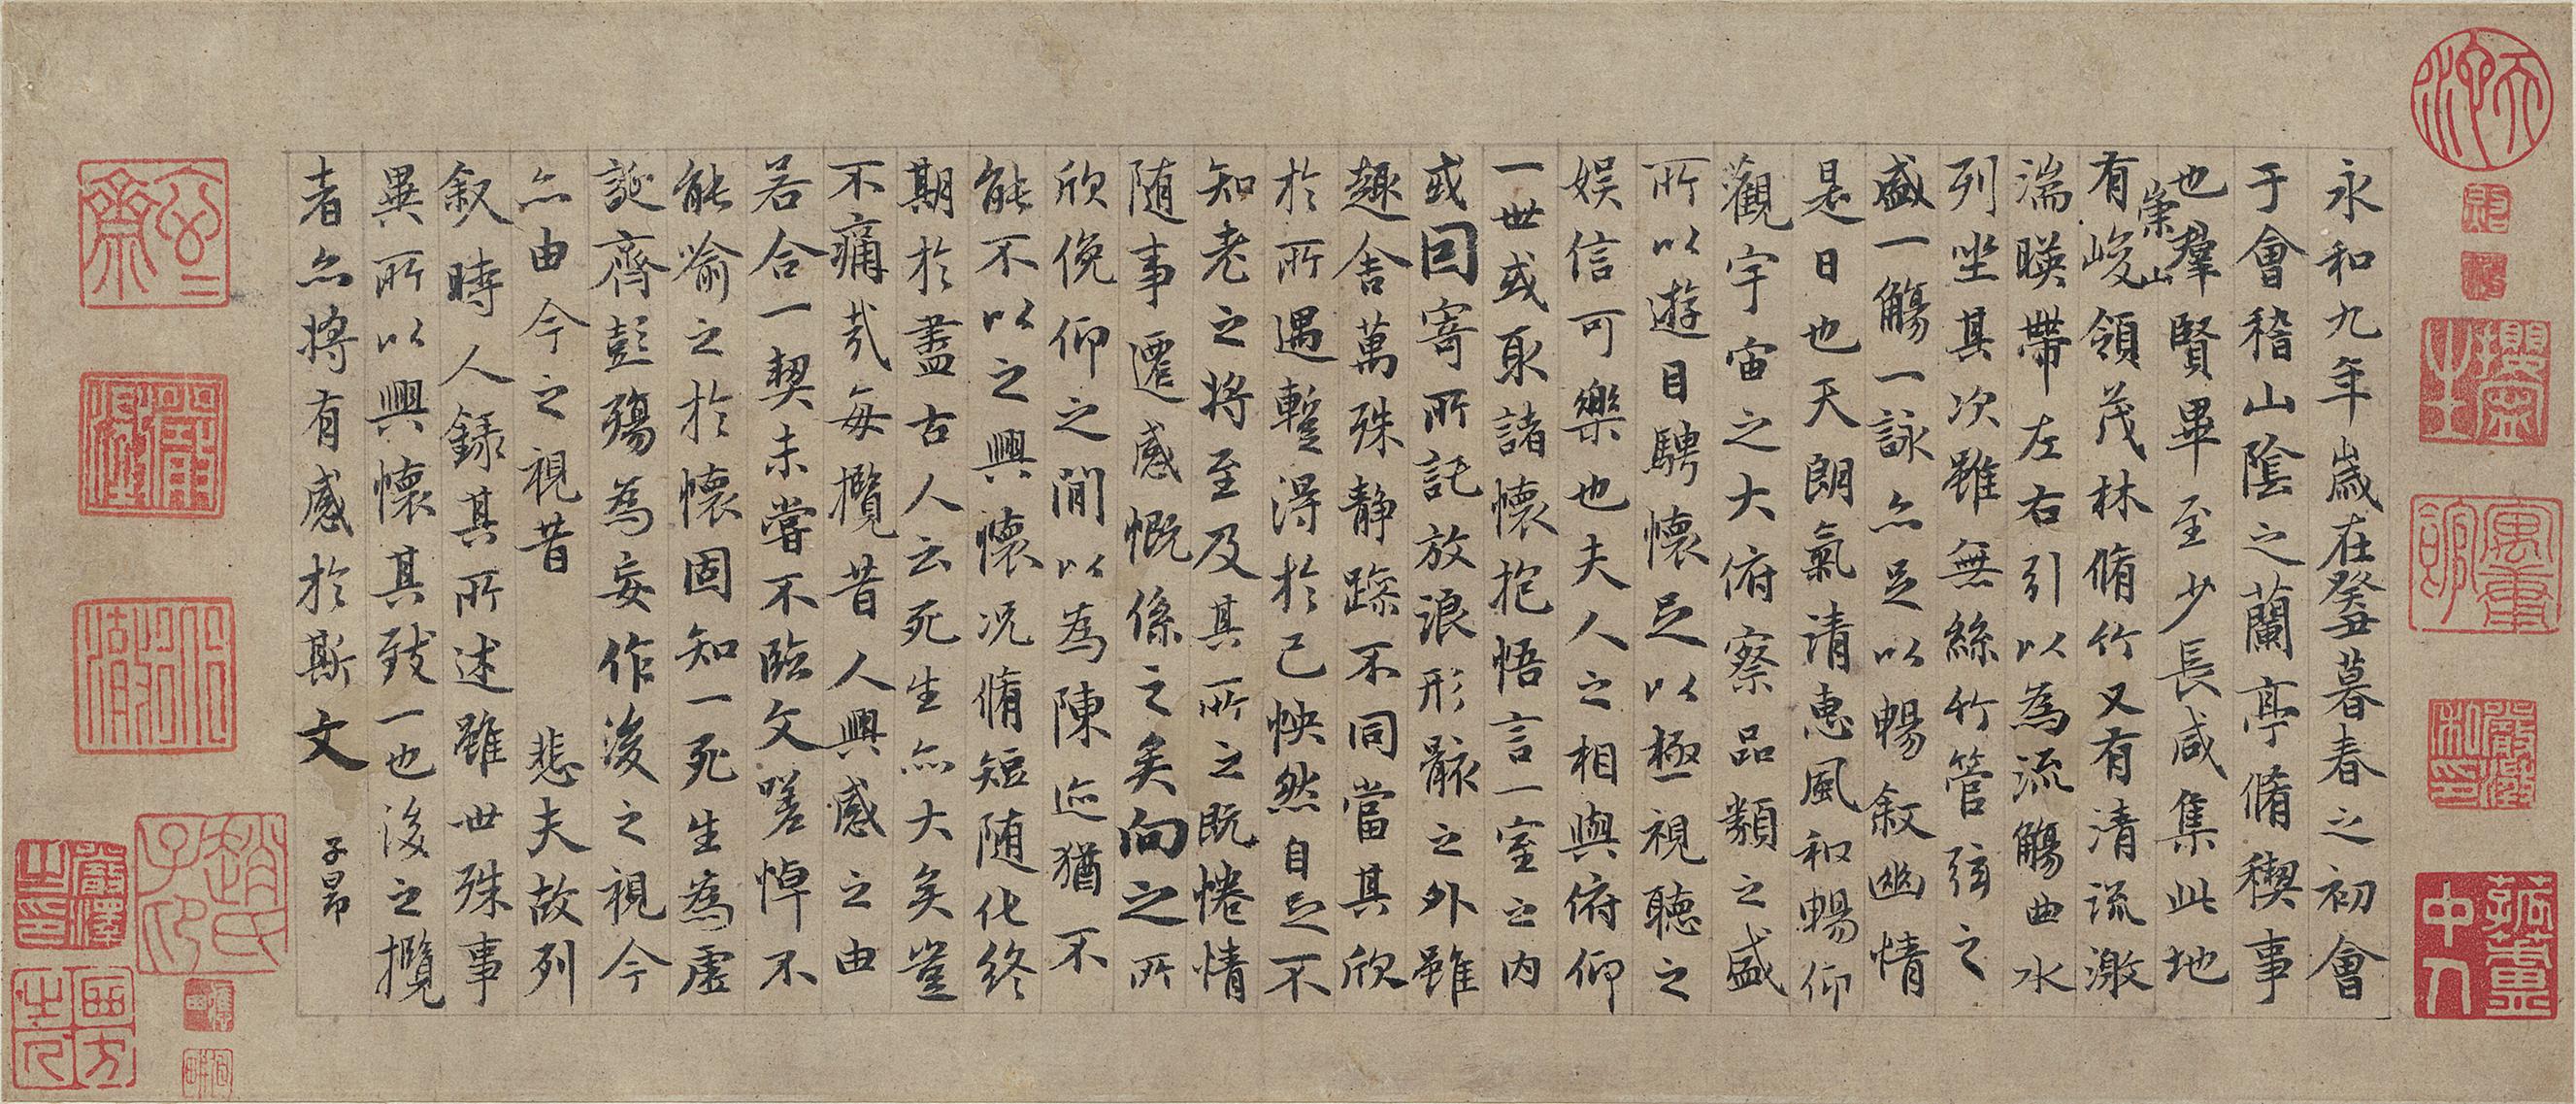 永和九年歲在癸丑暮春之初會
于會稽山陰之蘭亭脩稧事
也羣賢畢至少長咸集此地
有崇山峻領茂林脩竹又有清流激
湍暎帶左右引以為流觴曲水
列坐其次雖無絲竹管弦之
盛一觴一詠亦足以暢叙幽情
是日也天朗氣清惠風和暢仰
觀宇宙之大俯察品類之盛
所以遊目騁懷足以極視聽之
娛信可樂也夫人之相與俯仰
一世或取諸懷抱悟言一室之内
或因寄所託放浪形骸之外雖
趣舍萬殊静躁不同當其欣
於所遇蹔得於己怏然自足不
知老之将至及其所之既惓情
随事遷感慨係之矣向之所
欣俛仰之閒以為陳迹猶不
能不以之興懷况脩短随化終
期於盡古人云死生亦大矣豈
不痛哉每攬昔人興感之由
若合一契未嘗不臨文嗟悼不
能喻之於懷固知一死生為虛
誕齊彭殤為妄作後之視今
亦由今之視昔 悲夫故列
叙時人録其所述雖世殊事
異所以興懷其致一也後之攬
者亦將有感於斯文 子昂
趙氏子印
嚴澤之印